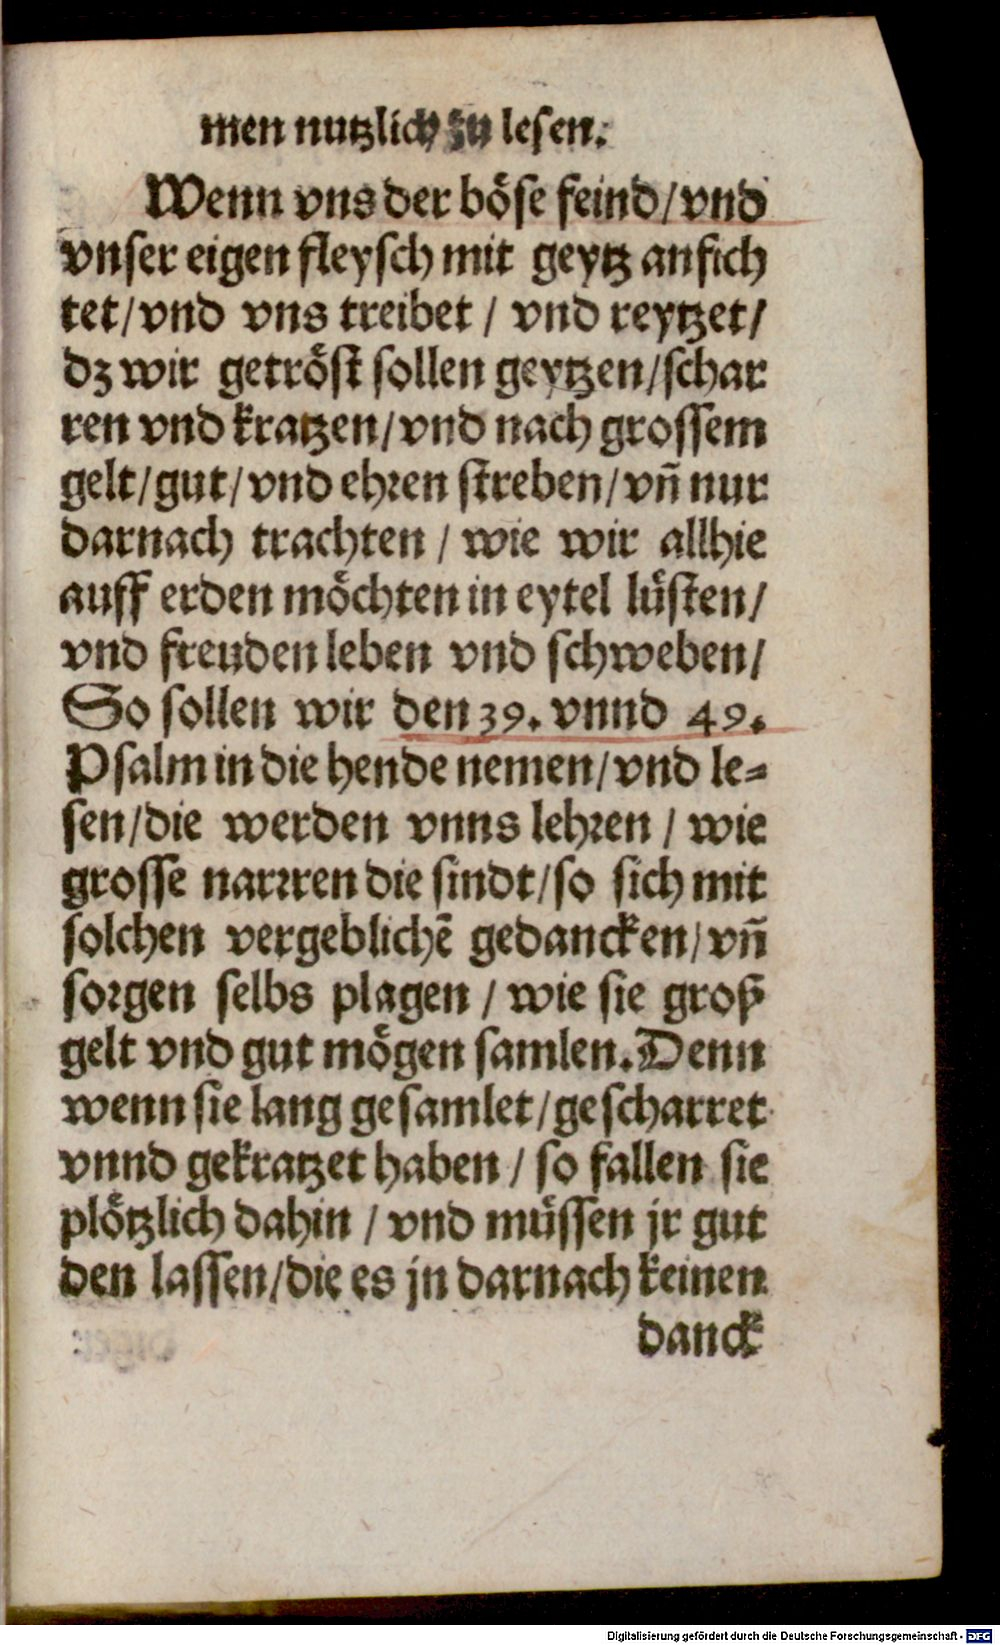 men nutzlich zu lesen.
Wenn vns der böse feind/vnd
vnser eigen fleysch mit geytz anfich
tet/vnd vns treibet / vnd reytzet/
dz wir getröst sollen geytzen/schar
ren vnd kratzen/vnd nach grossem
gelt/gut/vnd ehren streben/vn̄ nur
darnach trachten / wie wir allhie
auff erden möchten in eytel lüsten/
vnd freuden leben vnd schweben/
So sollen wir den 39. vnnd 49.
Psalm in die hende nemen/vnd le=
sen/die werden vnns lehren / wie
grosse narrren die sindt/so sich mit
solchen vergeblichē gedancken/vn̄
sorgen selbs plagen / wie sie groß
gelt vnd gut mögen samlen. Denn
wenn sie lang gesamlet/gescharret
vnnd gekratzet haben / so fallen sie
plötzlich dahin / vnd müssen jr gut
den lassen/die es jn darnach keinen
danck
Digitalisierung gefördert durch die Deutsche Forschungsgemeinschaft - DFG